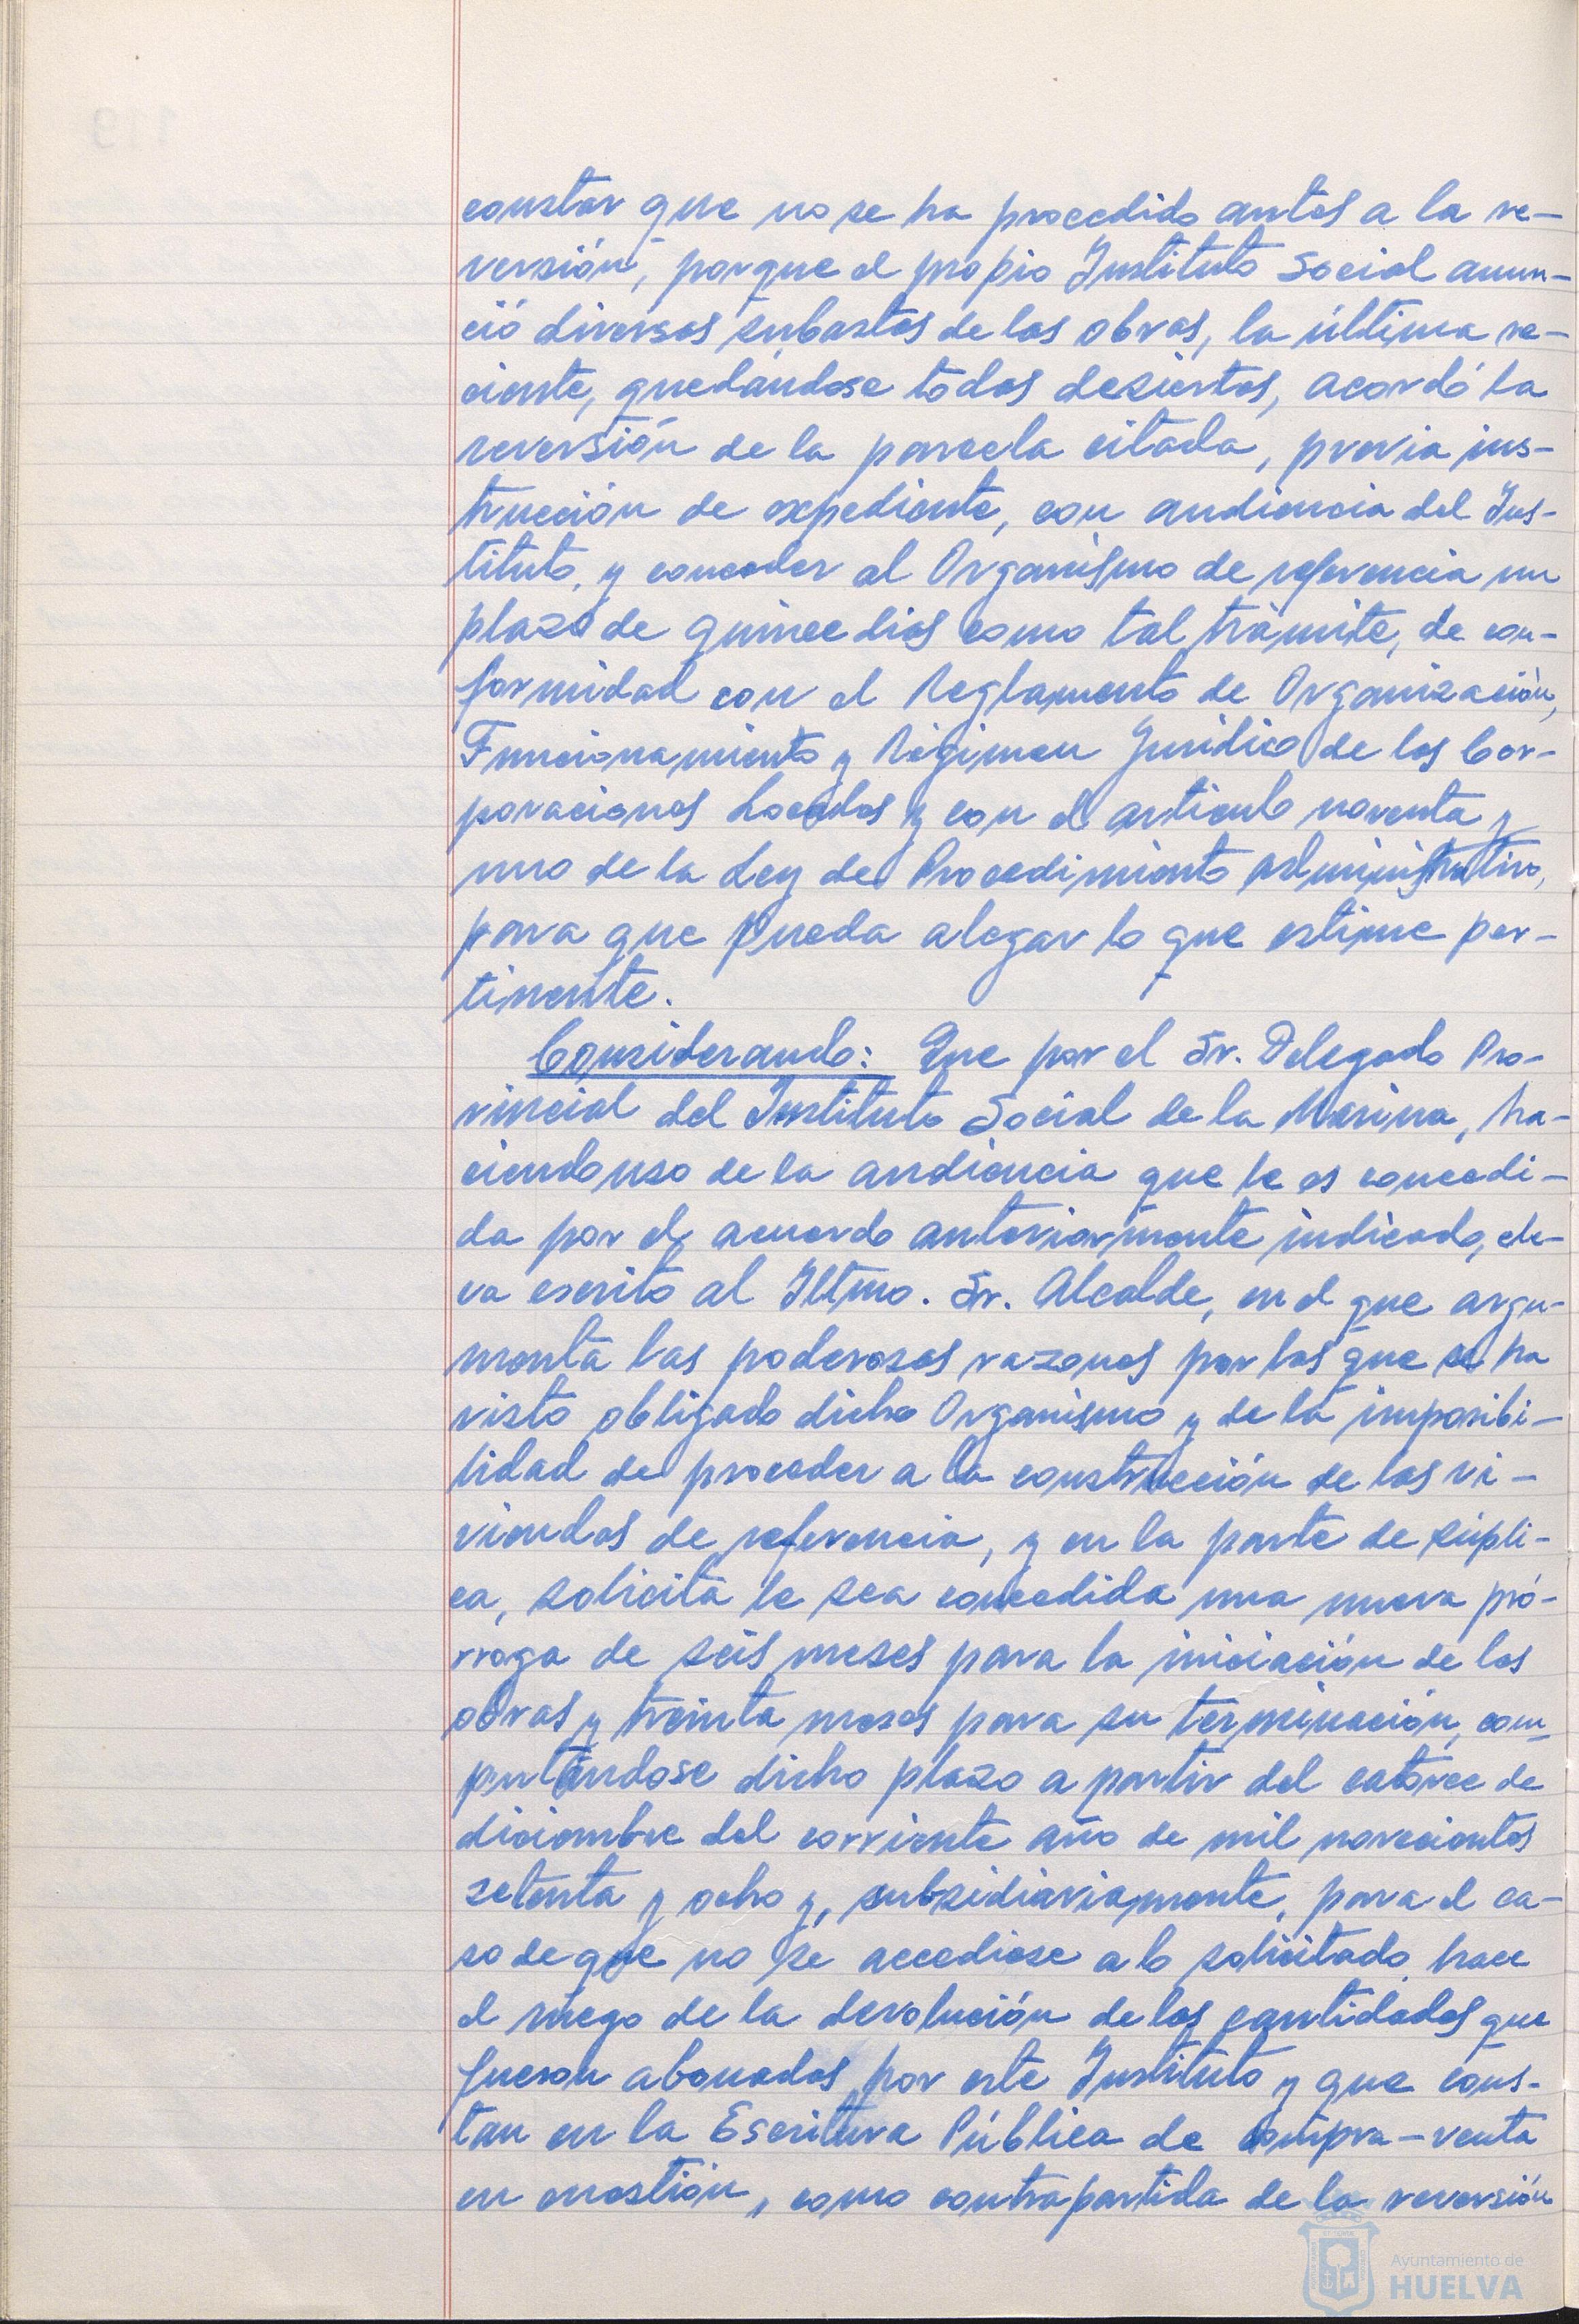 constar que no se ha procedido antes a la re-
versión, porque el propio Instituto Social anun-
ció diversas subastas de las obras, la última re-
ciente, quedándose todas desiertas, acordó la
reversión de la parcela citada, previa ins-
trucción de expediente, con audiencia del Ins-
tituto, y conceder al Organismo de referencia un
plazo de quince dias como tal trámite, de con-
formidad con el Reglamento de Organización,
Funcionamiento y Régimen Jurídico de las Cor-
poraciones Locales y con el artículo noventa y
uno de la Ley de Procedimiento Administrativo,
para que pueda alegar lo que estime per-
tinente.
Considerando: Que por el Sr. Delegado Pro-
vincial del Instituto Social de la Marina, ha-
ciendo uso de la audiencia que le es concedi-
da por el acuerdo anteriormente indicado, ele-
va escrito al Iltmo. Sr. Alcalde, en el que argu-
menta las poderosas razones por las que se ha
visto obligado dicho Organismo y de la imposibi-
lidad de proceder a la construcción de las vi-
viendas de referencia, y en la parte de súpli-
ca, solicita le sea concedida una nueva pró-
rroga de seis meses para la iniciación de las
obras y treinta meses para su terminación, com-
putándose dicho plazo a partir del catorce de
diciembre del corriente año de mil novecientos
setenta y ocho y, subsidiariamente, para el ca-
so de que no se accediese a lo solicitado, hace
el ruego de la devolución de las cantidades que
fueron abonadas por este Instituto y que cons-
tan en la Escritura Pública de compra-venta
en cuestión, como contrapartida de la reversión
Ayuntamiento de
HUELVA